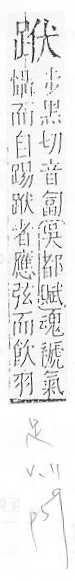 踾步黑切音匐吳都賦魂褫氣
慴而自踢踾者應弦而飮羽
足
V.11
P59